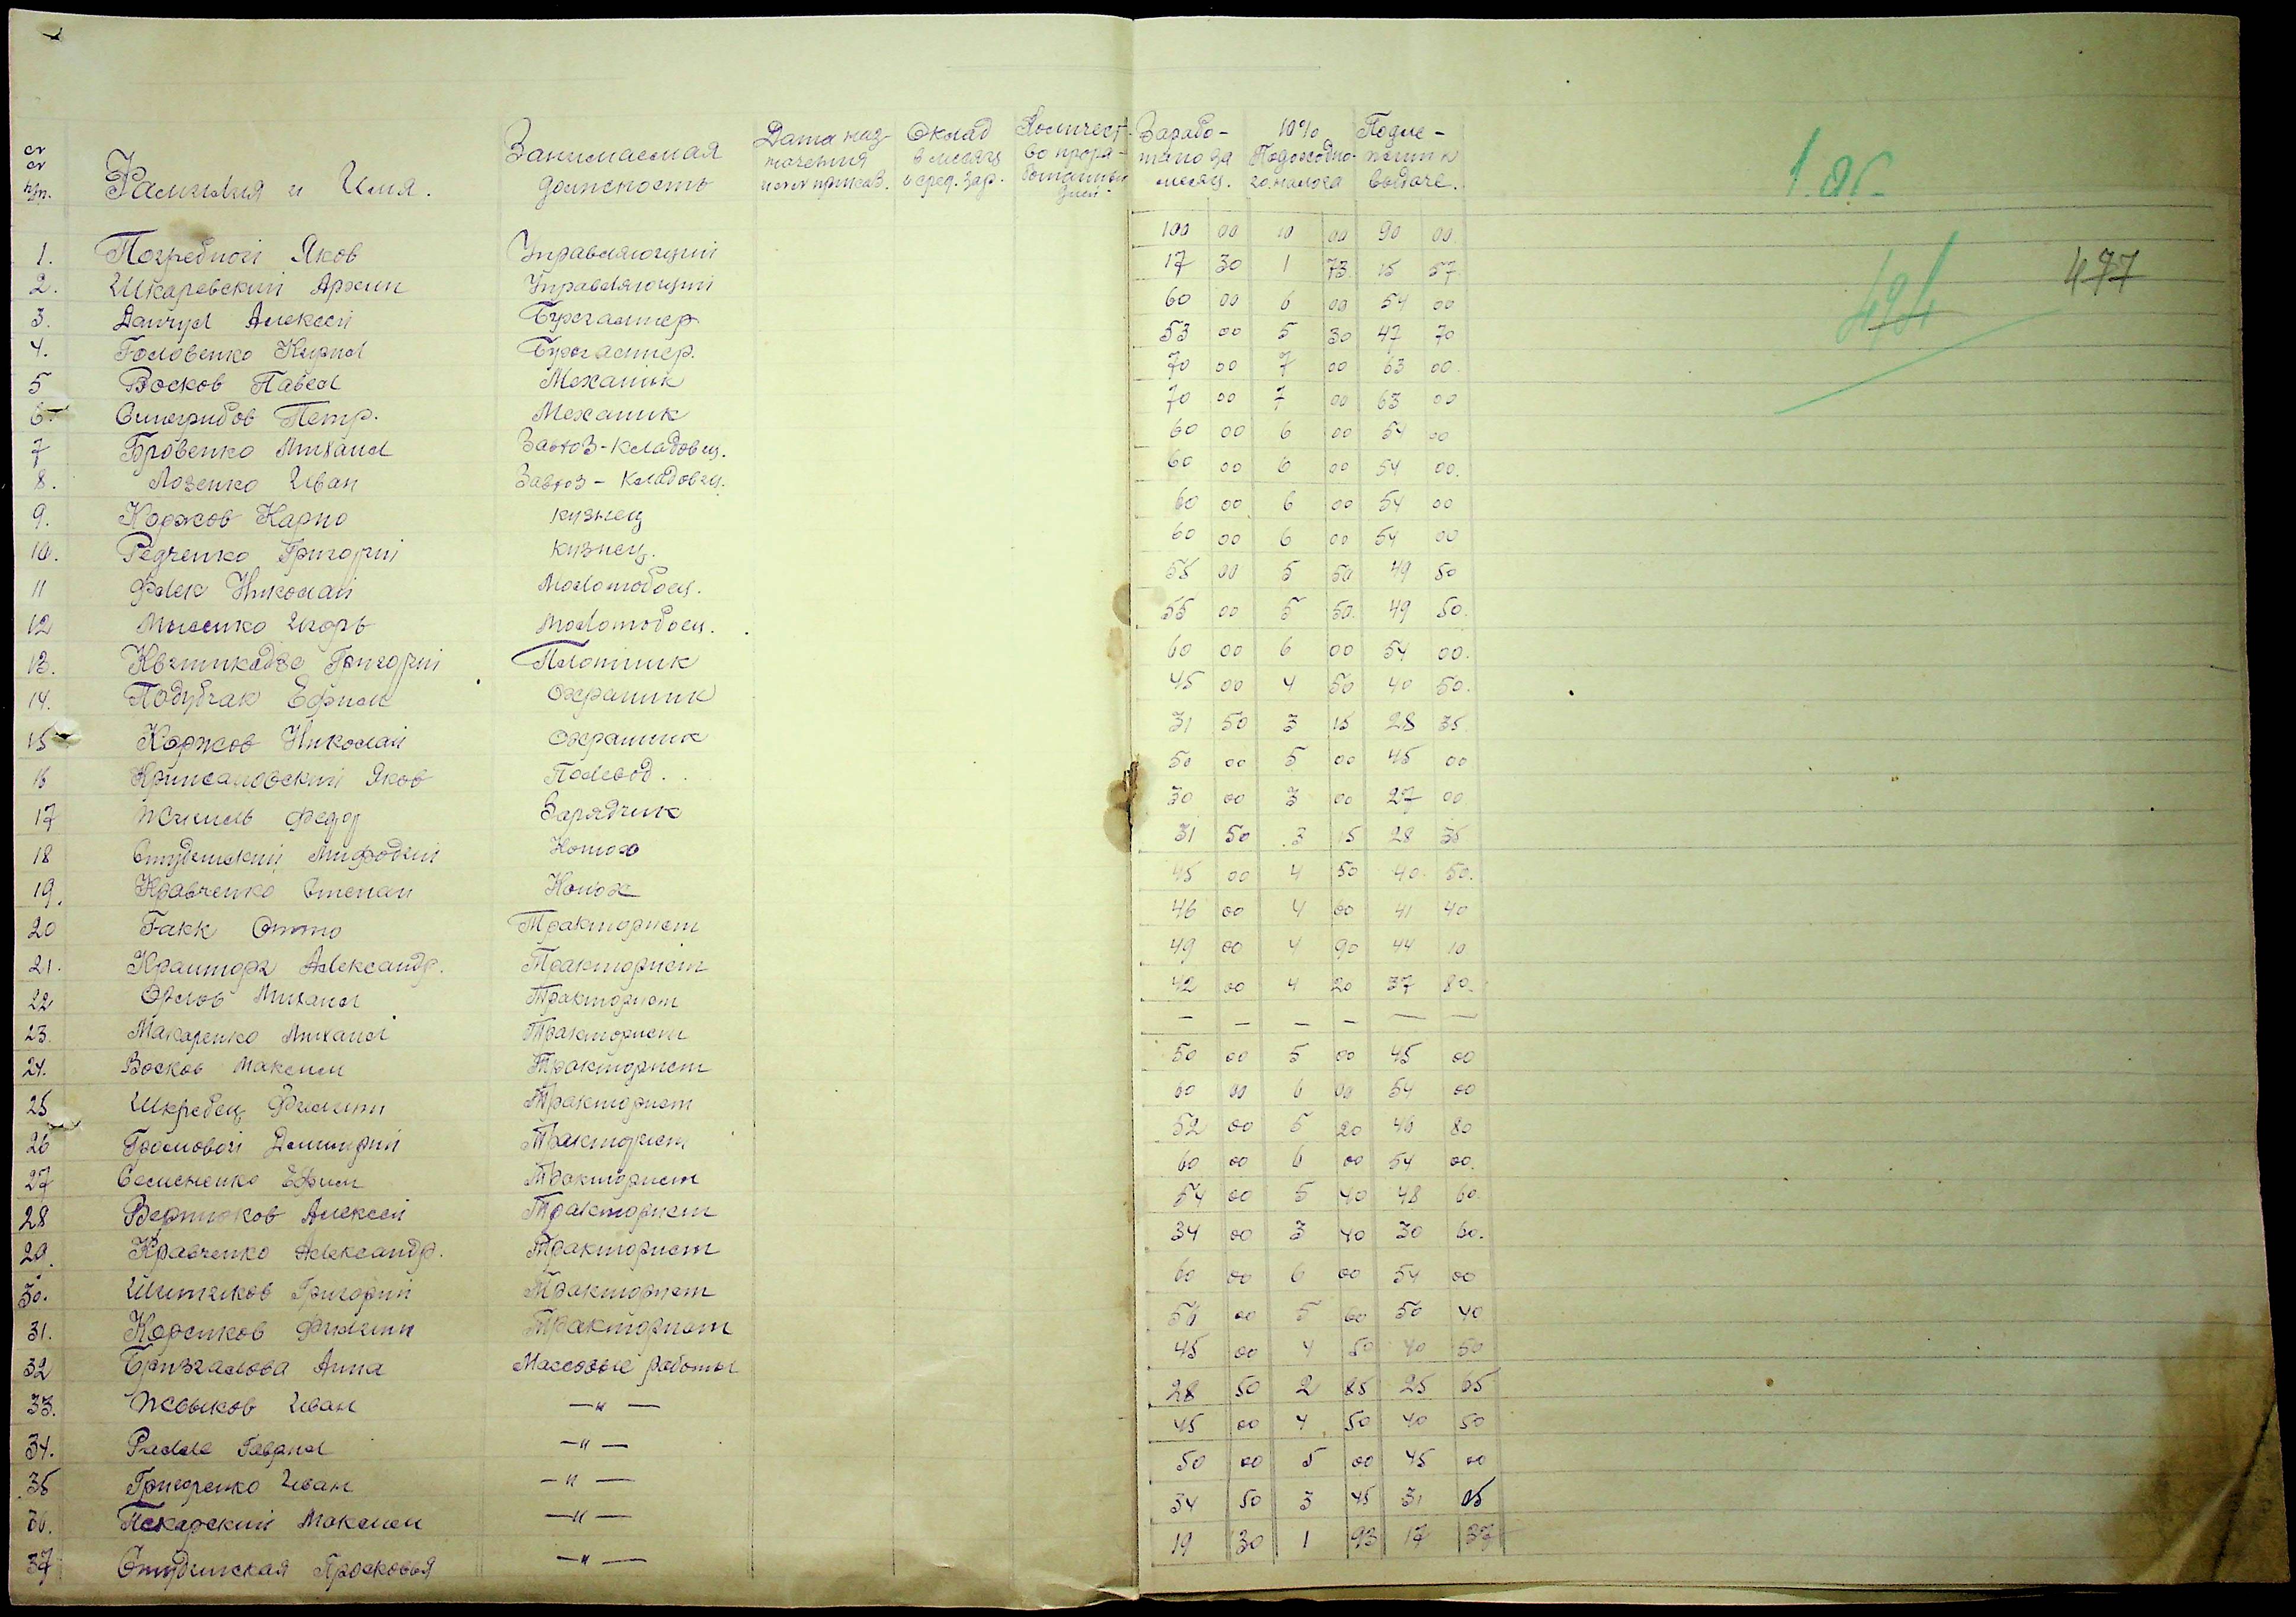 №№ п/п. Фамилия и Имя. Занимаемая должность Дата наз-начения Оклад в месяц и сред. зар. Количест-во прора-ботанных дней. Зарабо-тано за месяц. 10% Подоходно-го налога Подле-жит к выдаче.
1 477
1. Погребной Яков Управляющий 100 00 10 00 90 00
2. Шкаревский Архип Управляющий 17 30 1 73 15 57
3. Данчул Алексей Бухгалтер 60 00 6 00 54 00
4. Головенко Кирил Бухгалтер. 53 00 5 30 47 70
5 Восков Павел Механик 70 00 7 00 63 00
6. Синегрибов Петр. Механик 70 00 7 00 63 00
7 Бровенко Михаил Завхоз-кладовщ. 60 00 6 00 54 00
8. Лозенко Иван Завхоз - кладовщ. 60 00 6 00 54 00.
9. Коржов Карпо кузнец 60 00 6 00 54 00
10. Редченко Григорий кузнец. 60 00 6 00 54 00
11 Флек Николай Молотобоец. 55 00 5 50 49 50
12 Мысенко Игорь Молотобоец. 55 00 5 50 49 50.
13. Григорий Плотник 60 00 6 00 54 00.
14. Подубчак Ефим Охраник 45 00 4 50 40 50.
15 Коржов Николай Охраник 31 50 3 15 28 35
16 Яков Полевод. 50 00 5 00 45 00
17 Жигиль Федор Зарядчик 30 00 3 00 27 00
18 Студинский Мифодий Конюх 31 50 3 15 28 35
19. Кравченко Степан Конюх 45 00 4 50 40 50.
20 Гакк Отто Тракторист 46 00 4 60 41 40
21. Александр. Тракторист 49 00 4 90 44 10
22 Орлов Михаил Тракторист 42 00 4 20 37 80.
23. Макаренко Михаил Тракторист — — — — — —
24. Восков Максим Тракторист 50 00 5 00 45 00
25 Шкребец Филипп Тракторист 60 00 6 00 54 00
26 Громовой Димитрий Тракторист 52 00 5 20 46 80
27 Семененко Ефим Тракторист 60 00 6 00 54 00.
28 Вертюков Алексей Тракторист 54 00 5 40 48 60
29. Кравченко Александр. Тракторист 34 00 3 40 30 60.
30. Григорий Тракторист 60 00 6 00 54 00
31. Корсиков Филипп Тракторист 56 00 5 60 50 40
32 Бризгалова Анна Массовые работы 45 00 4 50 40 50
33. Жевыков Иван —"— 28 50 2 85 25 65
34. Гаврил —"— 45 00 4 50 40 50
35 Григоренко Иван —"— 50 00 5 00 45 00
36. Пекарский Максим —"— 34 50 3 45 31 05
37 Студинская Прасковья —"— 19 30 1 93 17 37